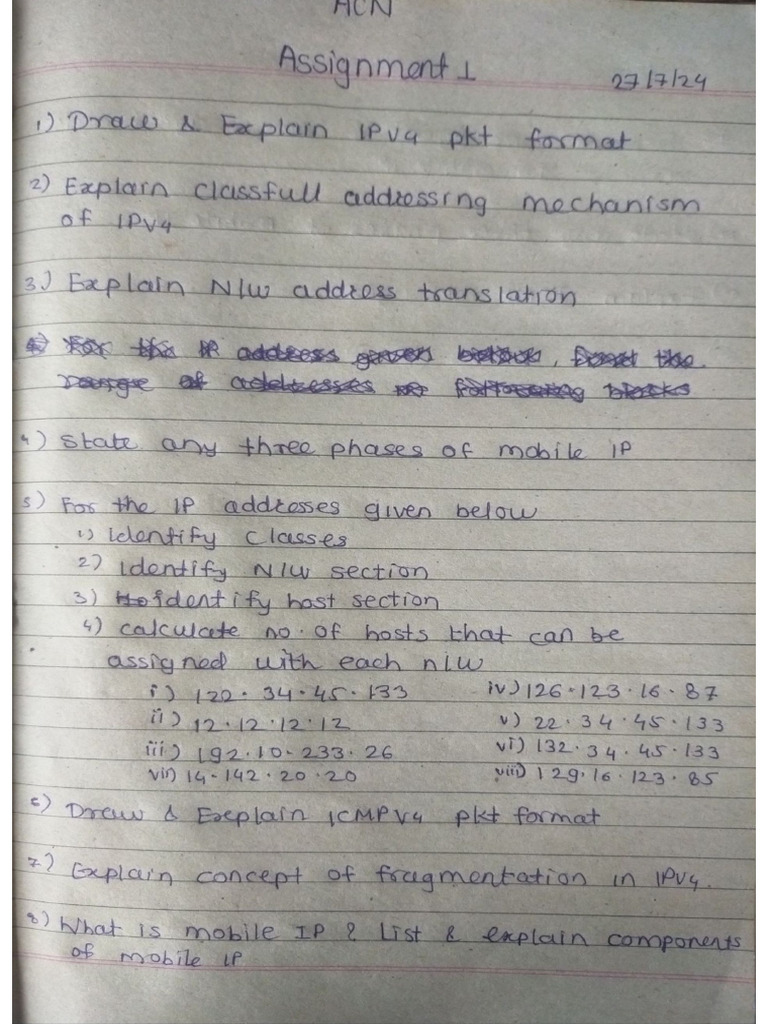 ACN
Assignment 1
27/7/24
1) Draw & Explain IPV4 pkt format
2) Explain classfull addressing mechanism
of IPV4
3) Explain N/W address translation
4) State any three phases of mobile IP
5) For the IP addresses given below
1) identify classes
2) identify N/W section
3) identify host section
4) calculate no. of hosts that can be
assigned with each n/w
i) 122.34.45.133 iv) 126.123.16.87
ii) 12.12.12.12 v) 22.34.45.133
iii) 192.10.233.26 vi) 132.34.45.133
vii) 14.142.20.20 viii) 129.16.123.85
6) Draw & Explain ICMPV4 pkt format
7) Explain concept of fragmentation in IPV4.
8) What is mobile IP? List & explain components
of mobile IP